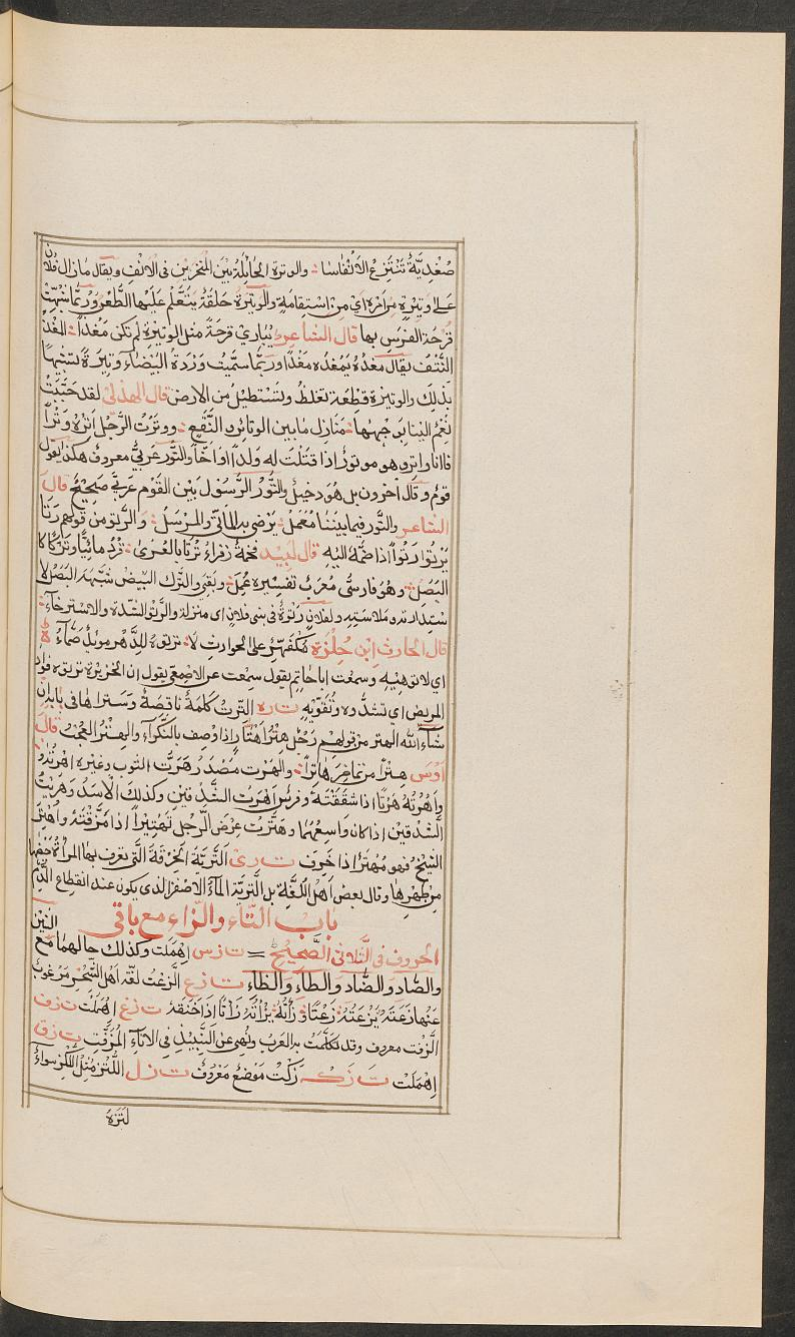 صُغْدِيَّةٌ تَنْتَزِعُ الأَنْفَاسَا والوترة الحائلة بين المنخرين فى الانف ويقال مازال فلان
على وتيرة من امره اى من استقامة والوتيرة حلقة يتعلم عليها الطعن وربما شبهت
قرحة الفرس بها قال الشاعر يبارى قرحة مثل الوتيرة لم تكن مغدا المغد
النتف يقال مغده يمغده مغدا وربما سميت وردة البيضاء وتيرة تشبيها
بذلك والوتيرة قطعة تغلظ وتستطيل من الارض قال الهذلى لقد حببت
نعم الينا بوجهها منازل مابين الوتائر والنقع ووترت الرجل اتره وترا
فانا واتر وهو موتور اذا قتلت له ولدا او اخا والتور عربى معروف هكذا يقول
قوم وقال آخرون بل هو دخيل والتور الرسول بين القوم عربى صحيح قال
الشاعر والتور فيما بيننا معمل يرضى به الماتى والمرسل والرتو من قولهم رتا
يرتوا رتوا اذا ضمه اليه قال لبيد فخمة زفراء ترتا بالعرى قردمانيا وتركا كا
البصل وهو فارسى معرب تفسيره عمل وبقى والترك البيض شبهه البصل لا
ستدارته وملاسته ولفلان رتوة فى بنى فلان اى منزلة والرتو الشدة والاسترخاء
قال الحارث ابن حلزة مكفهرا على الحوادث لا ترتوه للدهر مويد صماء
اى لا توهنه وسمعت اباحاتم يقول سمعت عن الاصمعى يقول ان الخزيرة ترتوه فواد
المريض اى تشده وتقويه ت ر ه الترت كلمة ناقصة وستراها فى بابها ان
شاء الله الهتر من قولهم رجل هتر اهتار اذا وصف بالنكراء والهتر العجب قال
اوس هترا من تماضر هاترا والهرت مصدر هرت الثوب وغيره اهرته و
واهرته هرتا اذا شققته وفرس اهرت الشدقين وكذلك الاسد وهريت
الشدقين اذا كان واسعهما وهترت عرض الرجل تهتيرا اذا مزقته واهتر
الشيخ فهو مهتر اذا خرف ت ر ى الترية الخرقة التى تعرف بها المراة حيضها
من طهرها وقال بعض اهل اللغة بل الترية الماء الاصفر الذى يكون عند انقطاع الدم
باب التاء والزاء مع باقى
الحروف فى الثلاثى الصحيح ت ز س اهملت وكذلك حالهما مع الشين
والصاد والضاد والطاء والظاء ت ز ع الزعت لغة اهل الشحر مرغوب
عنها زعته يزعته زعتا و زأته يزأته زأتا اذا خنقه ت ز غ اهملت ت ز ف
الزفت معروف وقد تكلمت به العرب ونهى عن النبيذ فى الاناء المزفت ت ز ق
اهملت ت ز ك زكت موضع معروف ت ز ل اللتز مثل اللكز سواء
لتزه